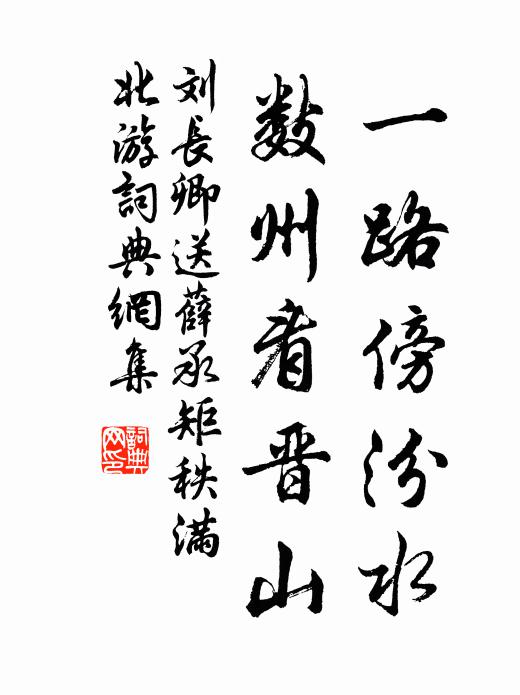 一路傍汾水
数州看晋山
刘長卿送薛承矩秩满
北游詞典網集
詞典网印